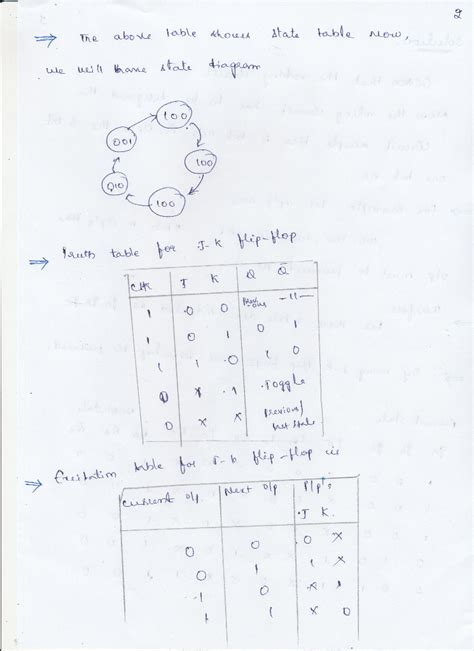 2
⇒ The above table shows state table now,
we will have state diagram
100
001
100
010
100
⇒ Truth table for J-K flip-flop
CLK J K Q Q
1 0 0 -11-
1 0 1 0 1
1 1 0 1 0
0 x 1 Toggle
0 x x Previous/
Next state
⇒ Excitation table for J-k flip-flop is
Current o/p Next o/p I/p's
J K
0 0 0 x
0 1 1 x
1 0 x 1
1 1 x 0